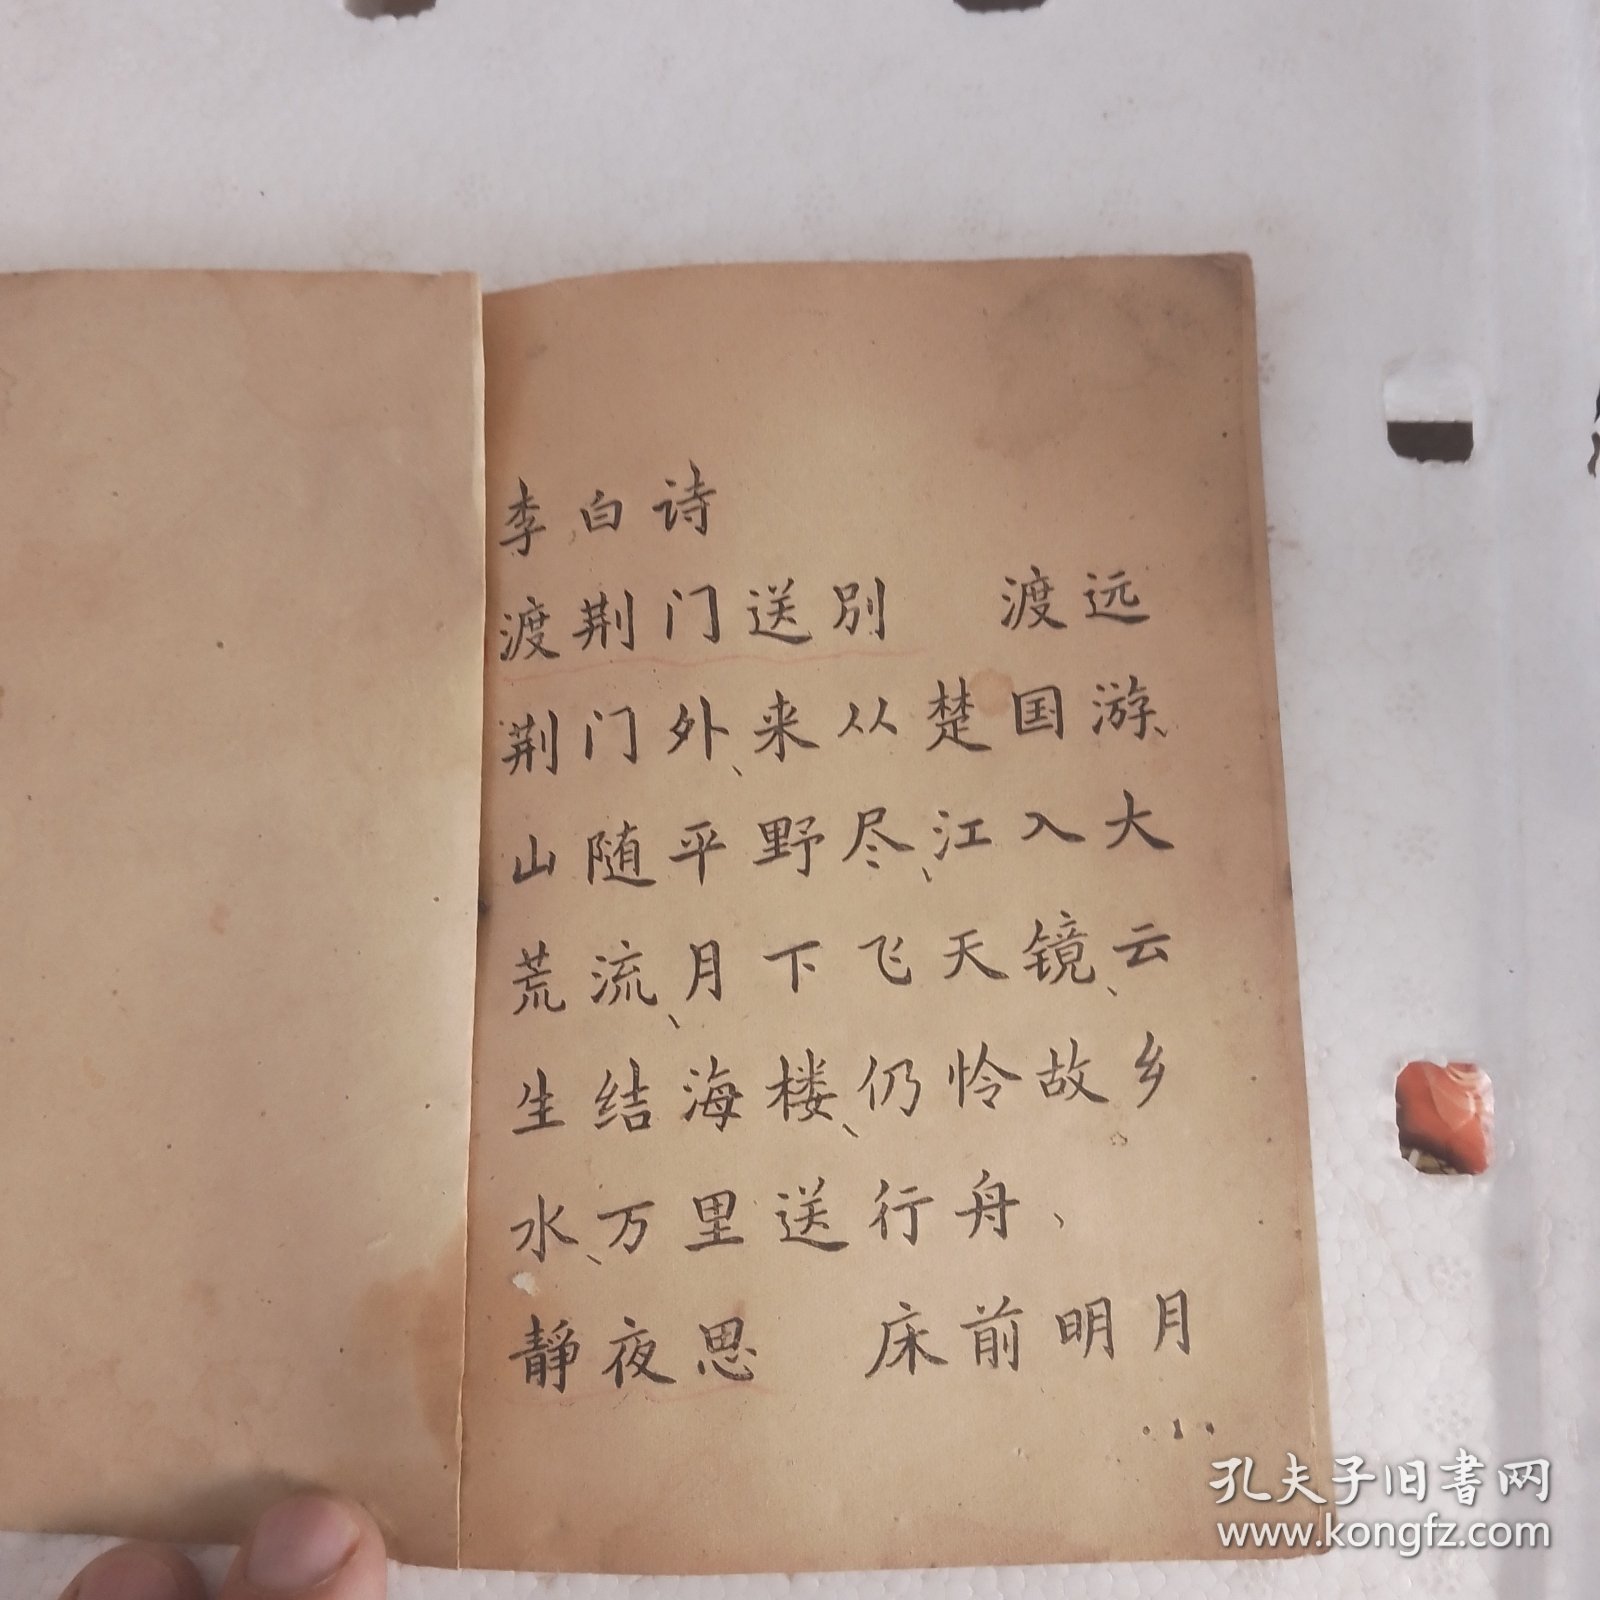 李白诗
渡荆门送别 渡远
荆门外、来从楚国游、
山随平野尽、江入大
荒流、月下飞天镜、云
生结海楼、仍怜故乡
水、万里送行舟、
静夜思 床前明月
·1·
孔夫子旧书网
www.kongfz.com